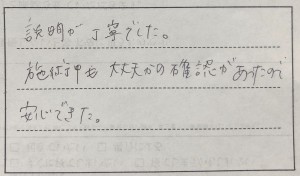 説明が丁寧でした。
施術中も大丈夫かの確認があったので
安心できた。